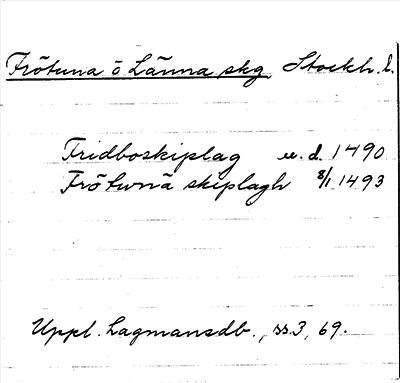 Frötuna o Länna skg Stockh. l.
Fridboskiplag u. d. 1490
Frötunä skiplagh 8/1 1493
Uppl. Lagmansdb., ss. 3, 69.